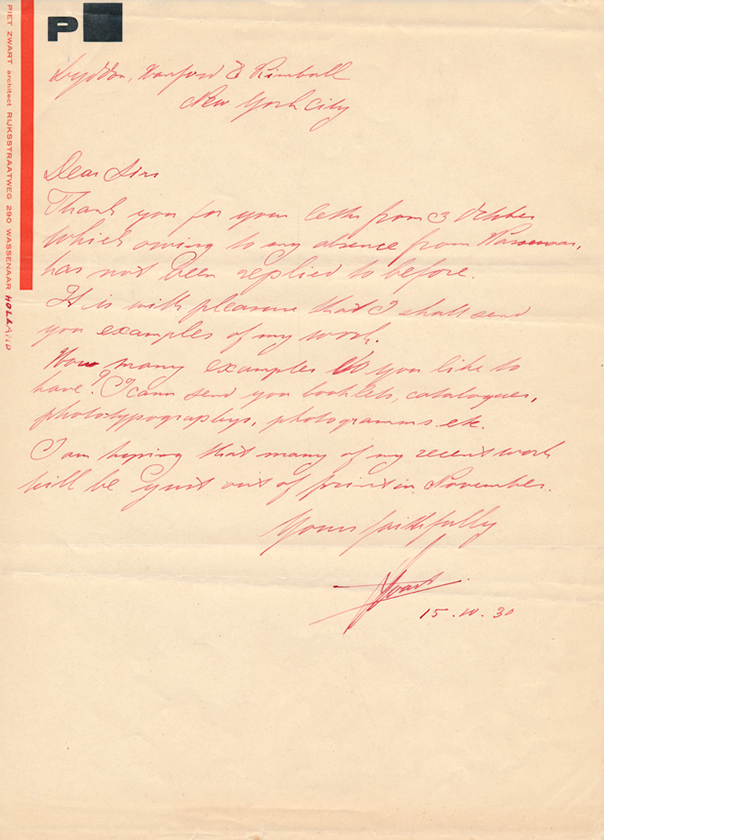 P
PIET ZWART architect RIJKSSTRAATWEG 290 WASSENAAR HOLLAND
Lyddon, Hanford & Kimball
New York City
Dear Sirs
Thank you for your letter from 3 October
which owing to my absence from Wassenaar,
has not been replied to before.
It is with pleasure that I shall send
you examples of my work.
How many examples do you like to
have? I cann send you booklets, catalogues,
phototypographys, photogramms etc.
I am hoping that many of my recent work
will be just out of print in November.
Yours faithfully
Zwart
15.10.30